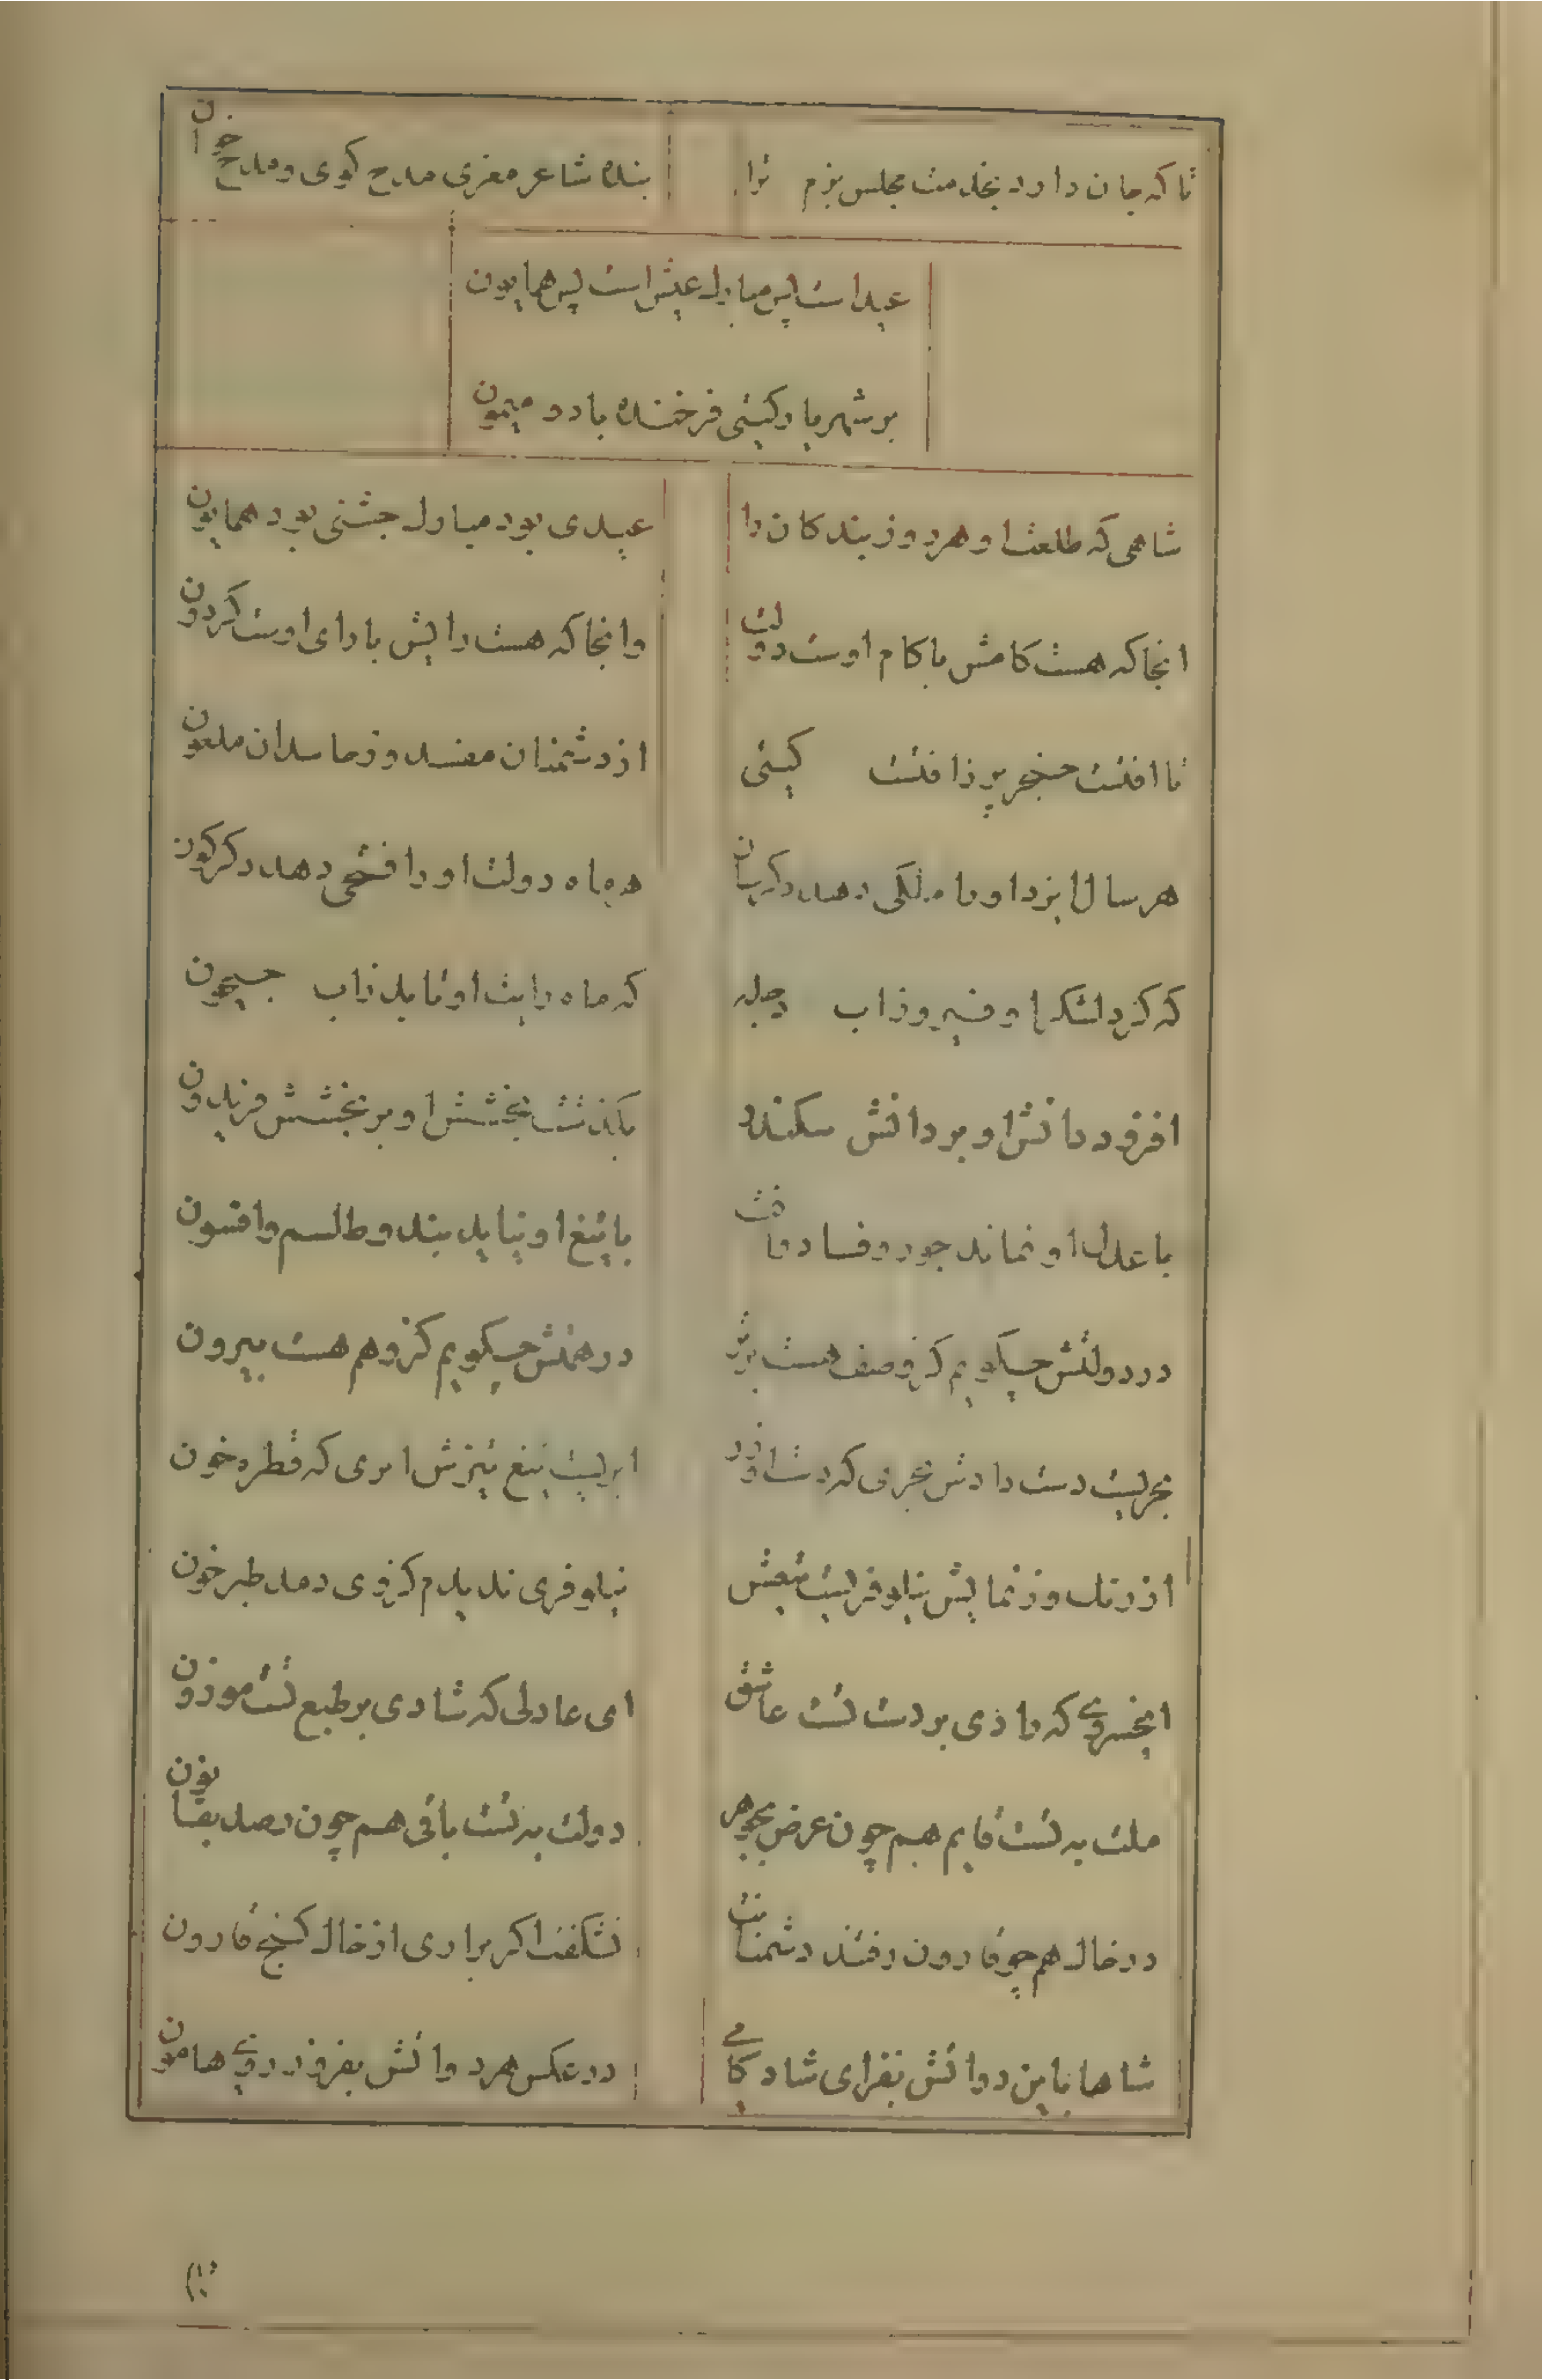 تا که جان دارد بخدمت مجلس بزم ترا بنده شاعر معزی مدح کوی و مدح خوان
عید است پس مبارک عیش است پس همایون
بر شهریار کیتی فرخنده باد و میمون
شاهی که طلعت او هر روز بندکان را عیدی بود مبارک جشنی بود همایون
انجا که هست کامش با کام اوست دولت وانجا که هست رایش با رای اوست کردون
تا افتست خنجر پر ز افتست کیتی از دشمنان مفسد وز حاسدان ملعون
هر سال ایزد او را ملکی دهد دکرسان هر ماه دولت او را فتحی دهد دکرکون
که کرد لشکر او فیروز اب دجله که ماه رایت او تابد ز اب جیحون
افزود دانش او بر دانش سکندر بکذشت بخشش او بر بخشش فریدون
با عدل او نماند جور و فساد و افت با تیغ او نپاید بند و طلسم و افسون
در دولتش چیکویم کز وصف هست برتر در همتش چیکویم کز وهم هست بیرون
بحریست دست رادش بحری که درش ابریست تیغ تیزش ابری که قطره خون
از رنک وز نمایش نیلوفریست تیغش نیلوفری ندیدم کز وی دمد طبرخون
ایخسروی که رادی بر دست تست عاشق ای عادلی که شادی بر طبع تست موزون
ملت به تست قایم همچون عرض بجوهر دولت به تست باقی همچون بقانون
در خاک همچو قارون رفتند دشمنانت نشکفت اکر براری از خاک کنج قارون
شاها باین دو اتش بفزای شادکامی در عکس هر دو اتش بفروز روی هامون